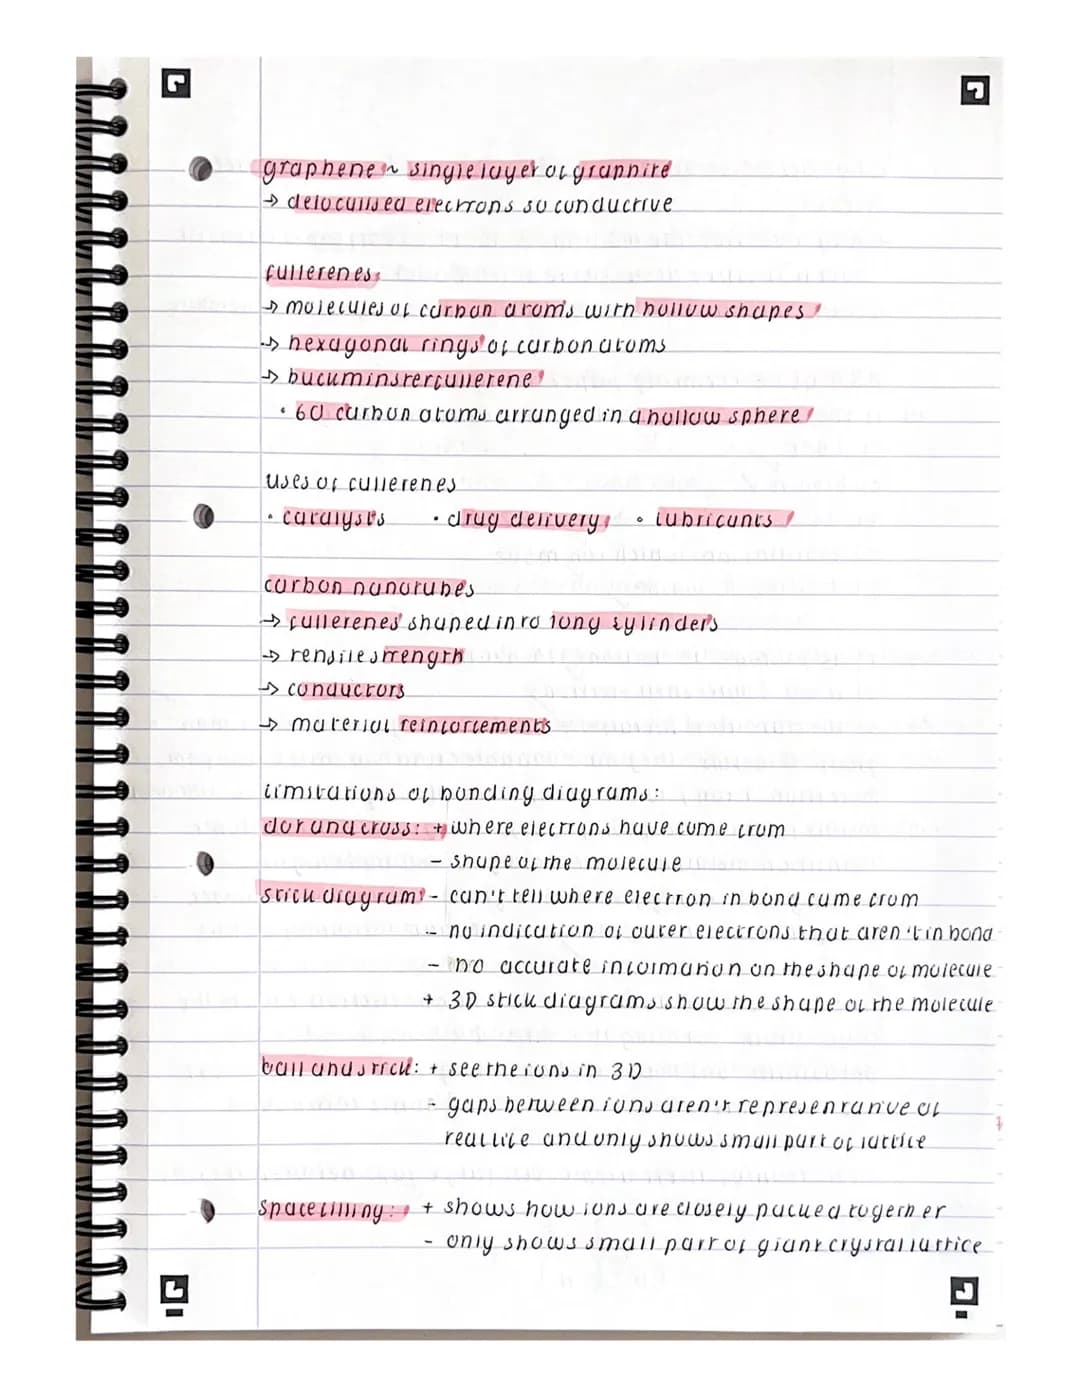 graphene ~ single layer of graphite
→ delocalised electrons so conductive
fullerenes:
→ molecules of carbon atoms with hollow shapes
→ hexagonal rings of carbon atoms
→ buckminsterfullerene
• 60 carbon atoms arranged in a hollow sphere
uses of fullerenes
• catalysts • drug delivery • lubricants
carbon nanotubes
→ fullerenes shaped into long cylinders
→ tensile strength
→ conductors
→ material reinforcements
limitations of bonding diagrams:
dot and cross: + where electrons have come from
- shape of the molecule
stick diagram: - can't tell where electron in bond came from
- no indication of outer electrons that aren't in bond
- no accurate information on the shape of molecule
+ 3D stick diagrams show the shape of the molecule
ball and stick: + see the ions in 3D
- gaps between ions aren't representative of
real life and only shows small part of lattice
space filling: + shows how ions are closely packed together
- only shows small part of giant crystal lattice